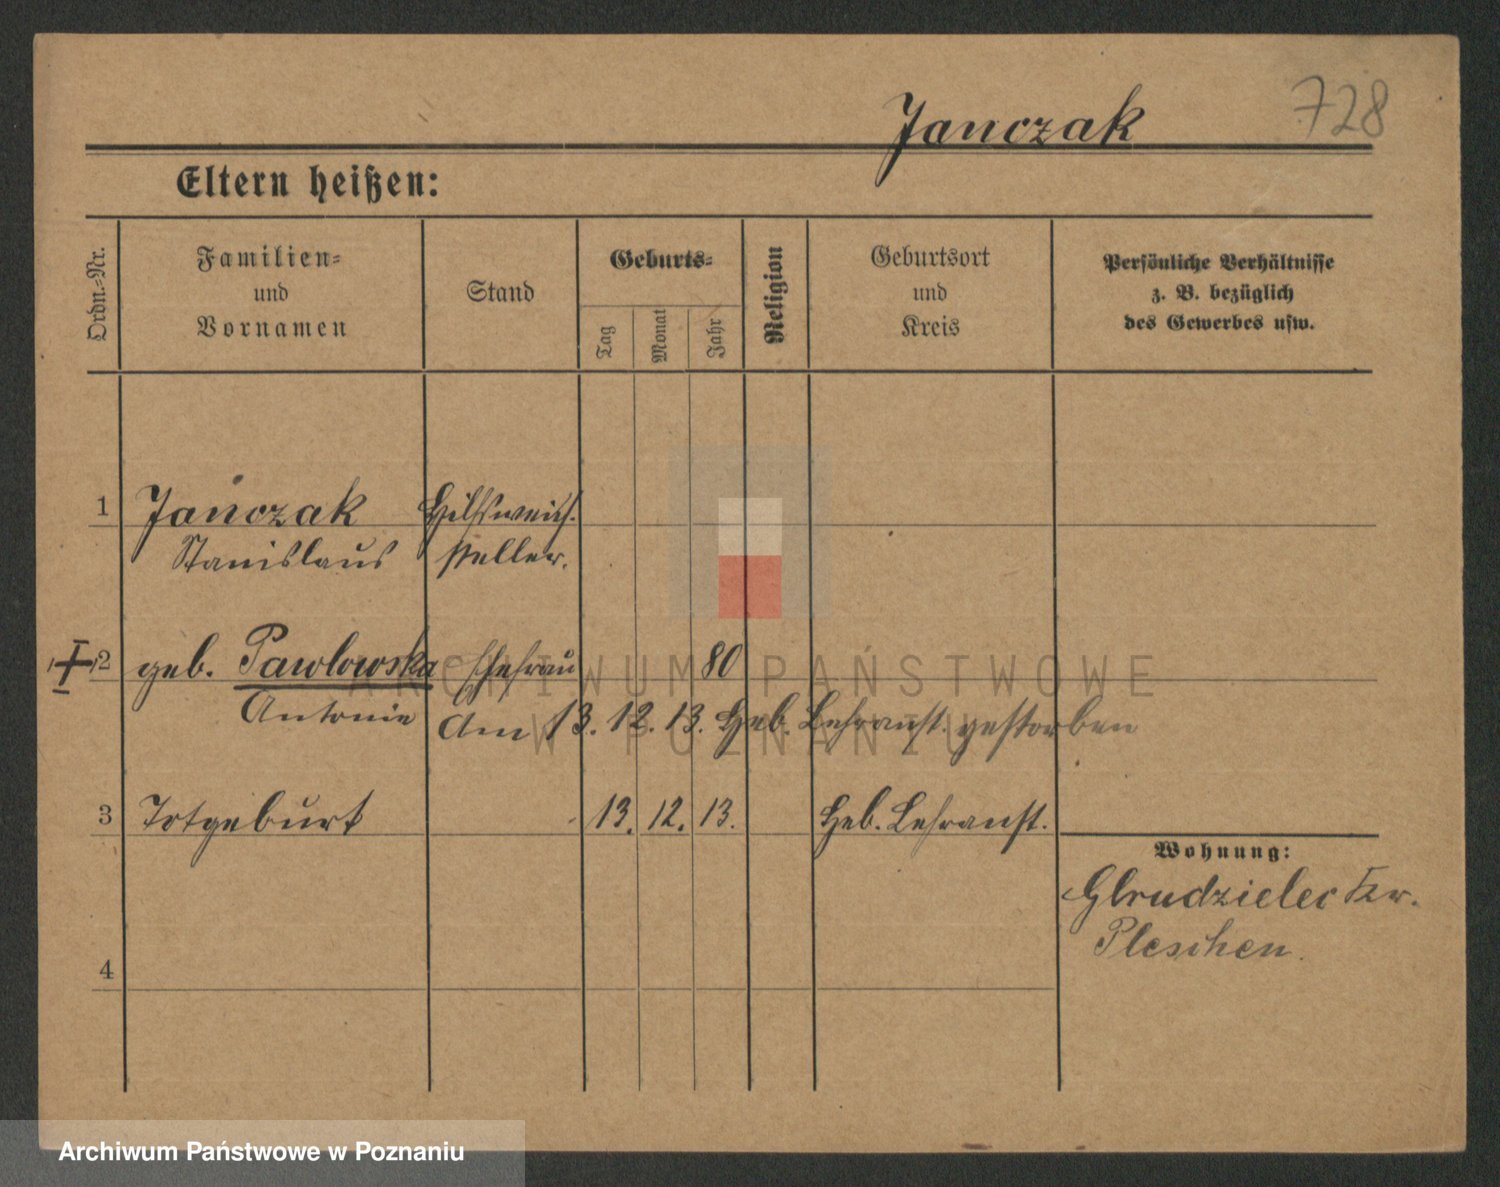 Janczak
728
Eltern heißen:
Ordn.-Nr.
Familien-
und
Vornamen
Stand
Geburts-
Tag
Monat
Jahr
Religion
Geburtsort
und
Kreis
Persönliche Verhältnisse
z. B. bezüglich
des Gewerbes usw.
1 Janczak Hilfsweich.
Stanislaus steller.
2 geb. Pawlowska Ehefrau 80
Antonie Am 13. 12. 13. Heb. Lehranst. gestorben
3 Totgeburt 13. 12. 13. Heb. Lehranst.
Wohnung:
Kr.
Pleschen.
4
ARCHIWUM PAŃSTWOWE
W POZNANIU
Archiwum Państwowe w Poznaniu